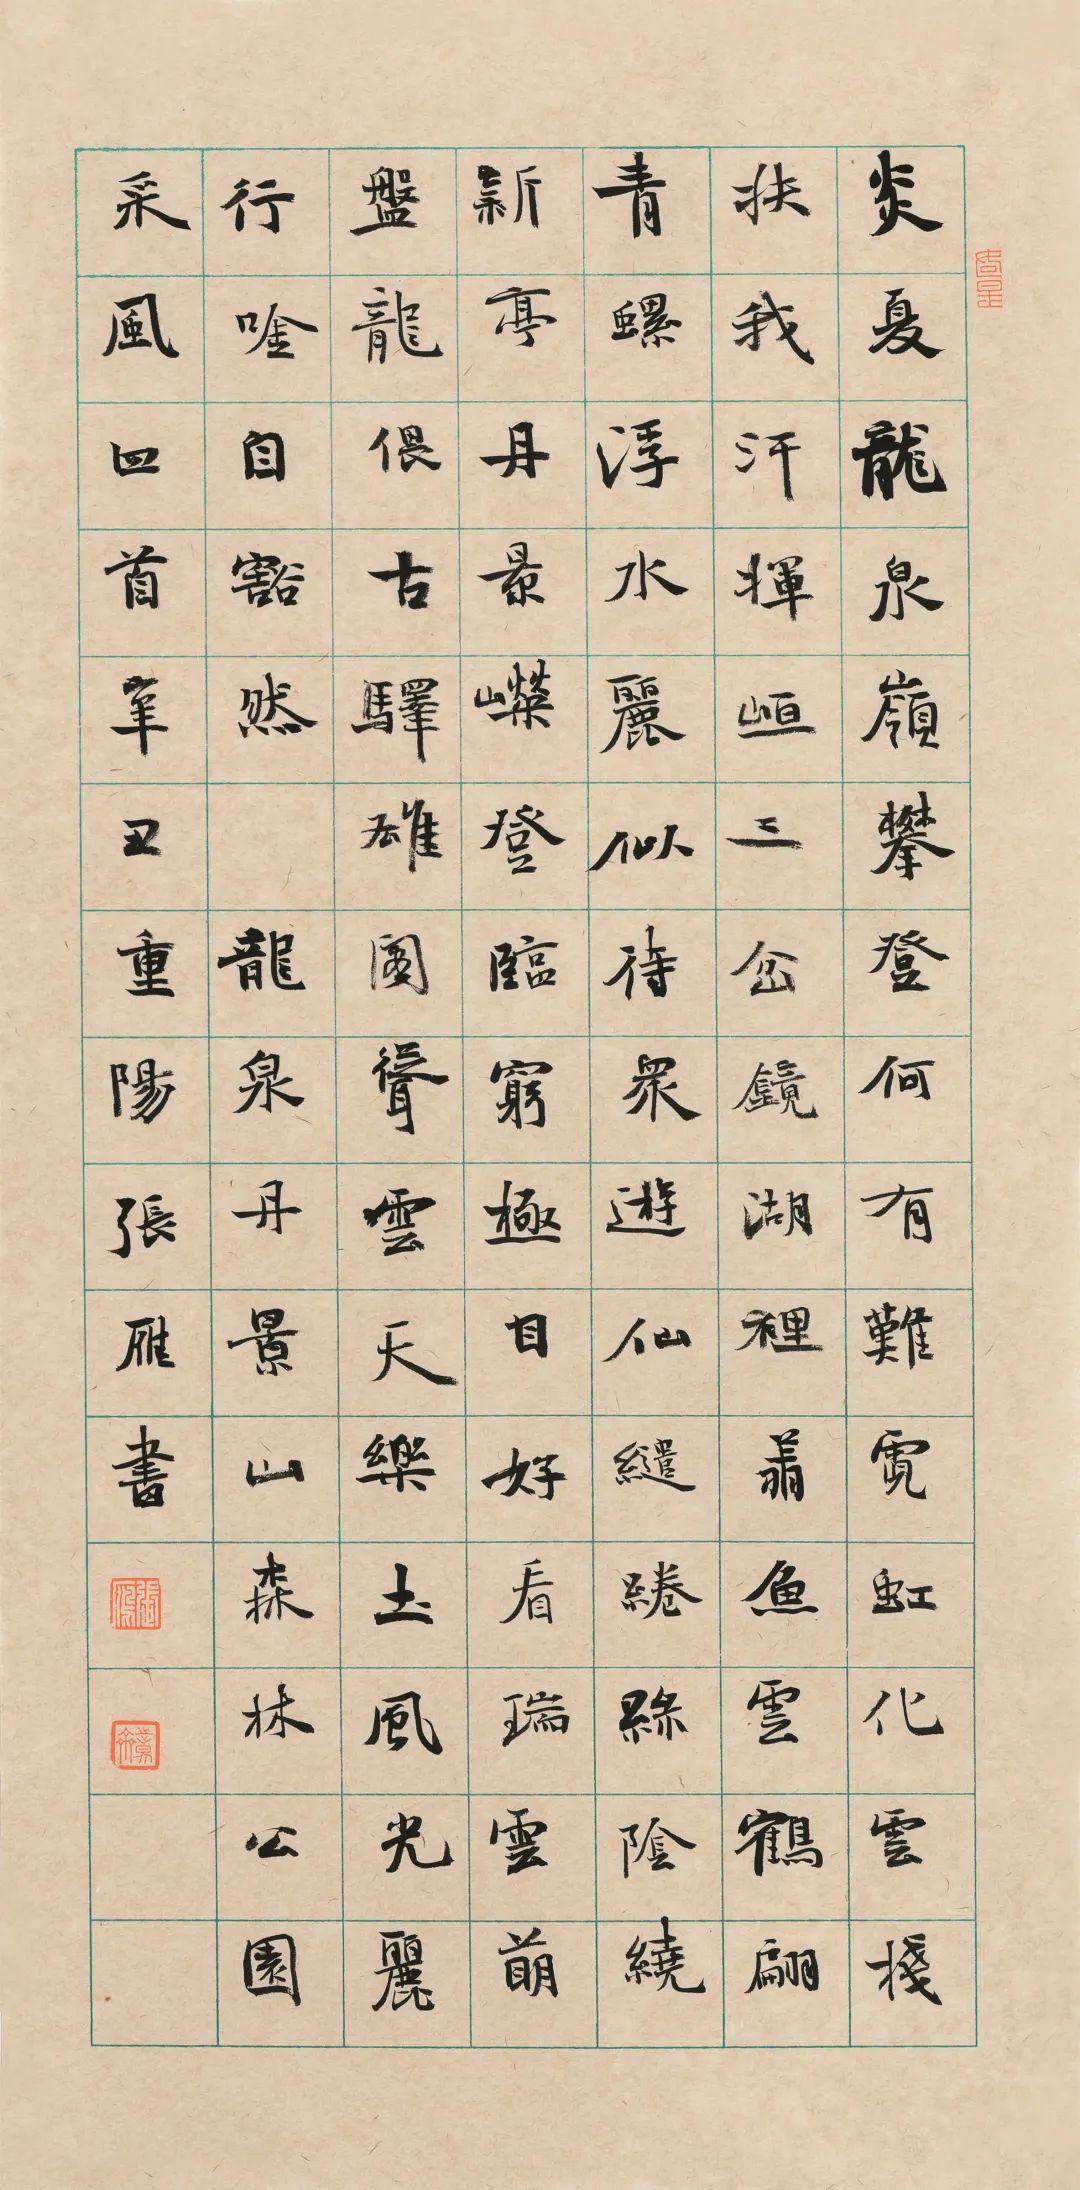 炎夏龍泉嶺攀登何有難霓虹化雲棧
扶我汗揮峘三岔鏡湖裡魚雲鶴翩
青螺浮水麗似待眾遊仙繾綣綠陰繞
新亭丹景嶸登臨窮極目好看瑞雲萌
盤龍偎古驛雄圖聳雲天樂土風光麗
行唫自豁然 龍泉丹景山森林公園
采風四首辛丑重陽張雁書